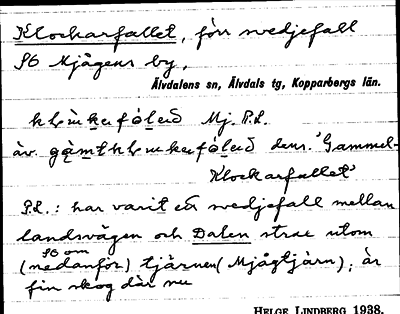 Klockarfallet, förr svedjefall
SO Mjågens by,
Älvdalens sn, Älvdals tg, Kopparbergs län.
Mj. P.L.
äv. dens. "Gammel-
Klockarfallet"
P.L.: har varit ett svedjefall mellan
landsvägen och Dalen strax utom
SO om
(nedanför) tjärnen (Mjågtjärn); är
fin skog där nu
HELGE LINDBERG 1938.